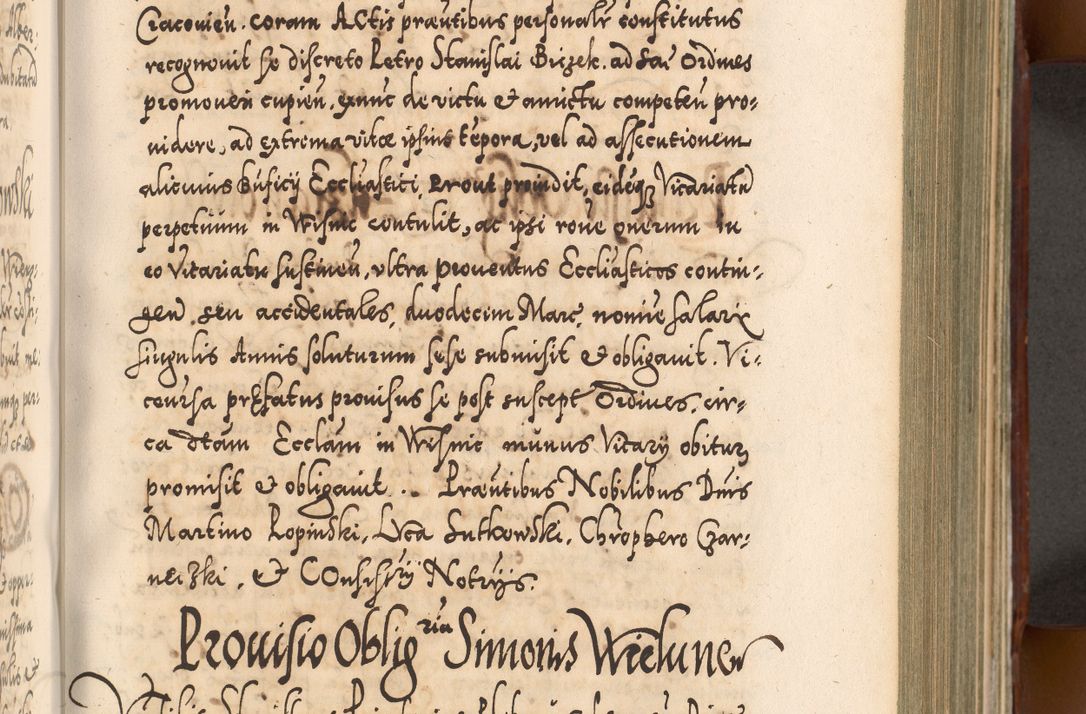 Cracovień. coram ACtis præńtibus personalr constitutus
recognovit se discreto Petro Stanislai Biczek. ad Sac Ordines
promoveri cupień, exnuc de victu et amictu competeń pro=
videre, ad extrema vitæ ipsius tēpora, vel ad assecutionem
alicuius Bńficij Ecclīastici, prout providit, eidéqz Vicariatū
perpetuum in Wisnic contulit, ac ipsi rońe onerum in
eo Vicariatu sustineń, ultra proventus Ecclīasticos contin=
geń seu accidentales, duodecim Marc nomie salarÿ
singulis Annis soluturum sese submisit et obligavit. Vi=
ceversa præfatus provisus se post suscept Ordines. cir=
ca dtam Ecclām in Wisnic munus Vicarÿ obitur
promisit et obligavit .. Præńtibus Nobilibus Dńis
Martino Lopinski, Luca Sutkowski, Chrophero Czar=
neczki, et COnsistrÿ Notrÿs.
Provisio Oblig ria Simonis Wielunen